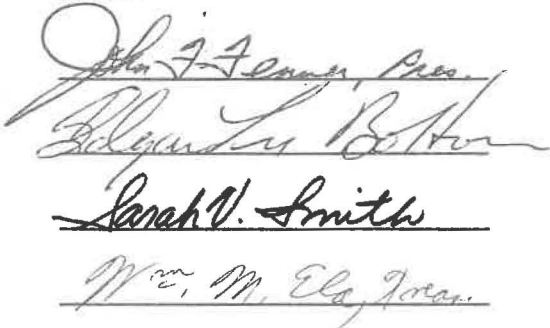 John F. Fenner, Pres.
Edgar Lee Bolton
Sarah V. Smith
Wm. M. Ela, Treas.